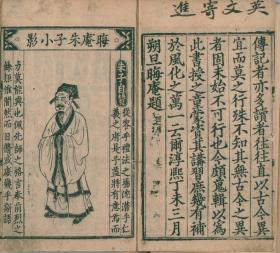 英文寄進
傳記者亦多讀者往往直以古今之異
宜而莫之行殊不知其無古今之異
者固未始不可行也今頗蒐輯以爲
此書授之童蒙資其講習庶幾有補
於風化之萬一云爾淳熙丁未三月
朔旦晦庵題
晦庵朱子小影
朱子自贊
從容乎禮法之場沉潛乎仁
義之府是予蓋將有意焉而
力莫能與也佩先師之格言奉前烈之
餘矩惟闇然而日脩或庶幾乎斯語